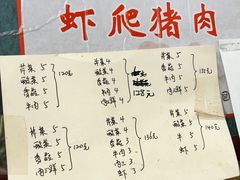 虾爬猪肉
芹菜 5
酸菜 5
香菇 5
牛肉 5
肉三鲜 5
120元
芹菜 4
酸菜 4
香菇 4
牛肉 4
128元
芹菜 5
酸菜 5
香菇 5
芹菜 5
酸菜 5
香菇 5
牛肉 5
肉三鲜 5
120元
芹菜 4
酸菜 4
香菇 3
牛肉 3
肉三 3
虾 3
136元
芹菜 5
酸菜 5
香菇 5
牛 5
虾 5
140元